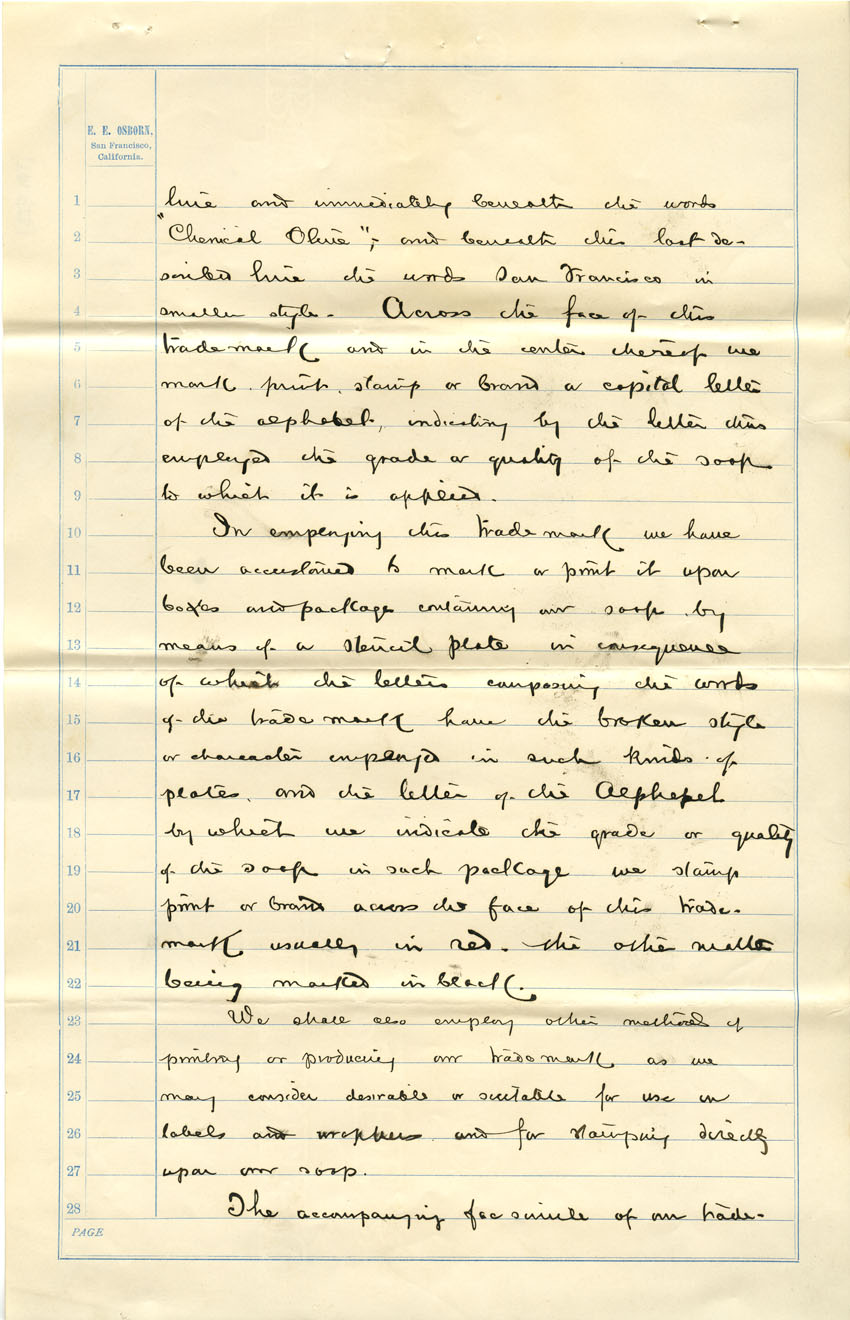 E. E. OSBORN,
San Francisco,
California.
1 line and immediately beneath the words
2 "Chemical Olive"; and beneath this last de-
3 scribed line the words San Francisco in
4 smaller style. Across the face of this
5 trade mark and in the center thereof we
6 mark, print, stamp or brand a capital letter
7 of the alphabet, indicating by the letter thus
8 employed the grade or quality of the soap
9 to which it is applied.
10 In employing this trade mark we have
11 been accustomed to mark or print it upon
12 boxes and package containing our soap by
13 means of a stencil plate in consequence
14 of which the letters composing the words
15 of the trade mark have the broken style
16 or character employed in such kinds of
17 plates, and the letter of the Alphepet
18 by which we indicate the grade or quality
19 of the soap in such package we stamp
20 print or brand across the face of this trade-
21 mark usually in red. the other matter
22 being marked in black.
23 We shall also employ other methods of
24 printing or producing our trade mark as we
25 may consider desirable or suitable for use on
26 labels and wrappers and for stamping directly
27 upon our soap.
28 The accompanying fac simile of our trade-
PAGE